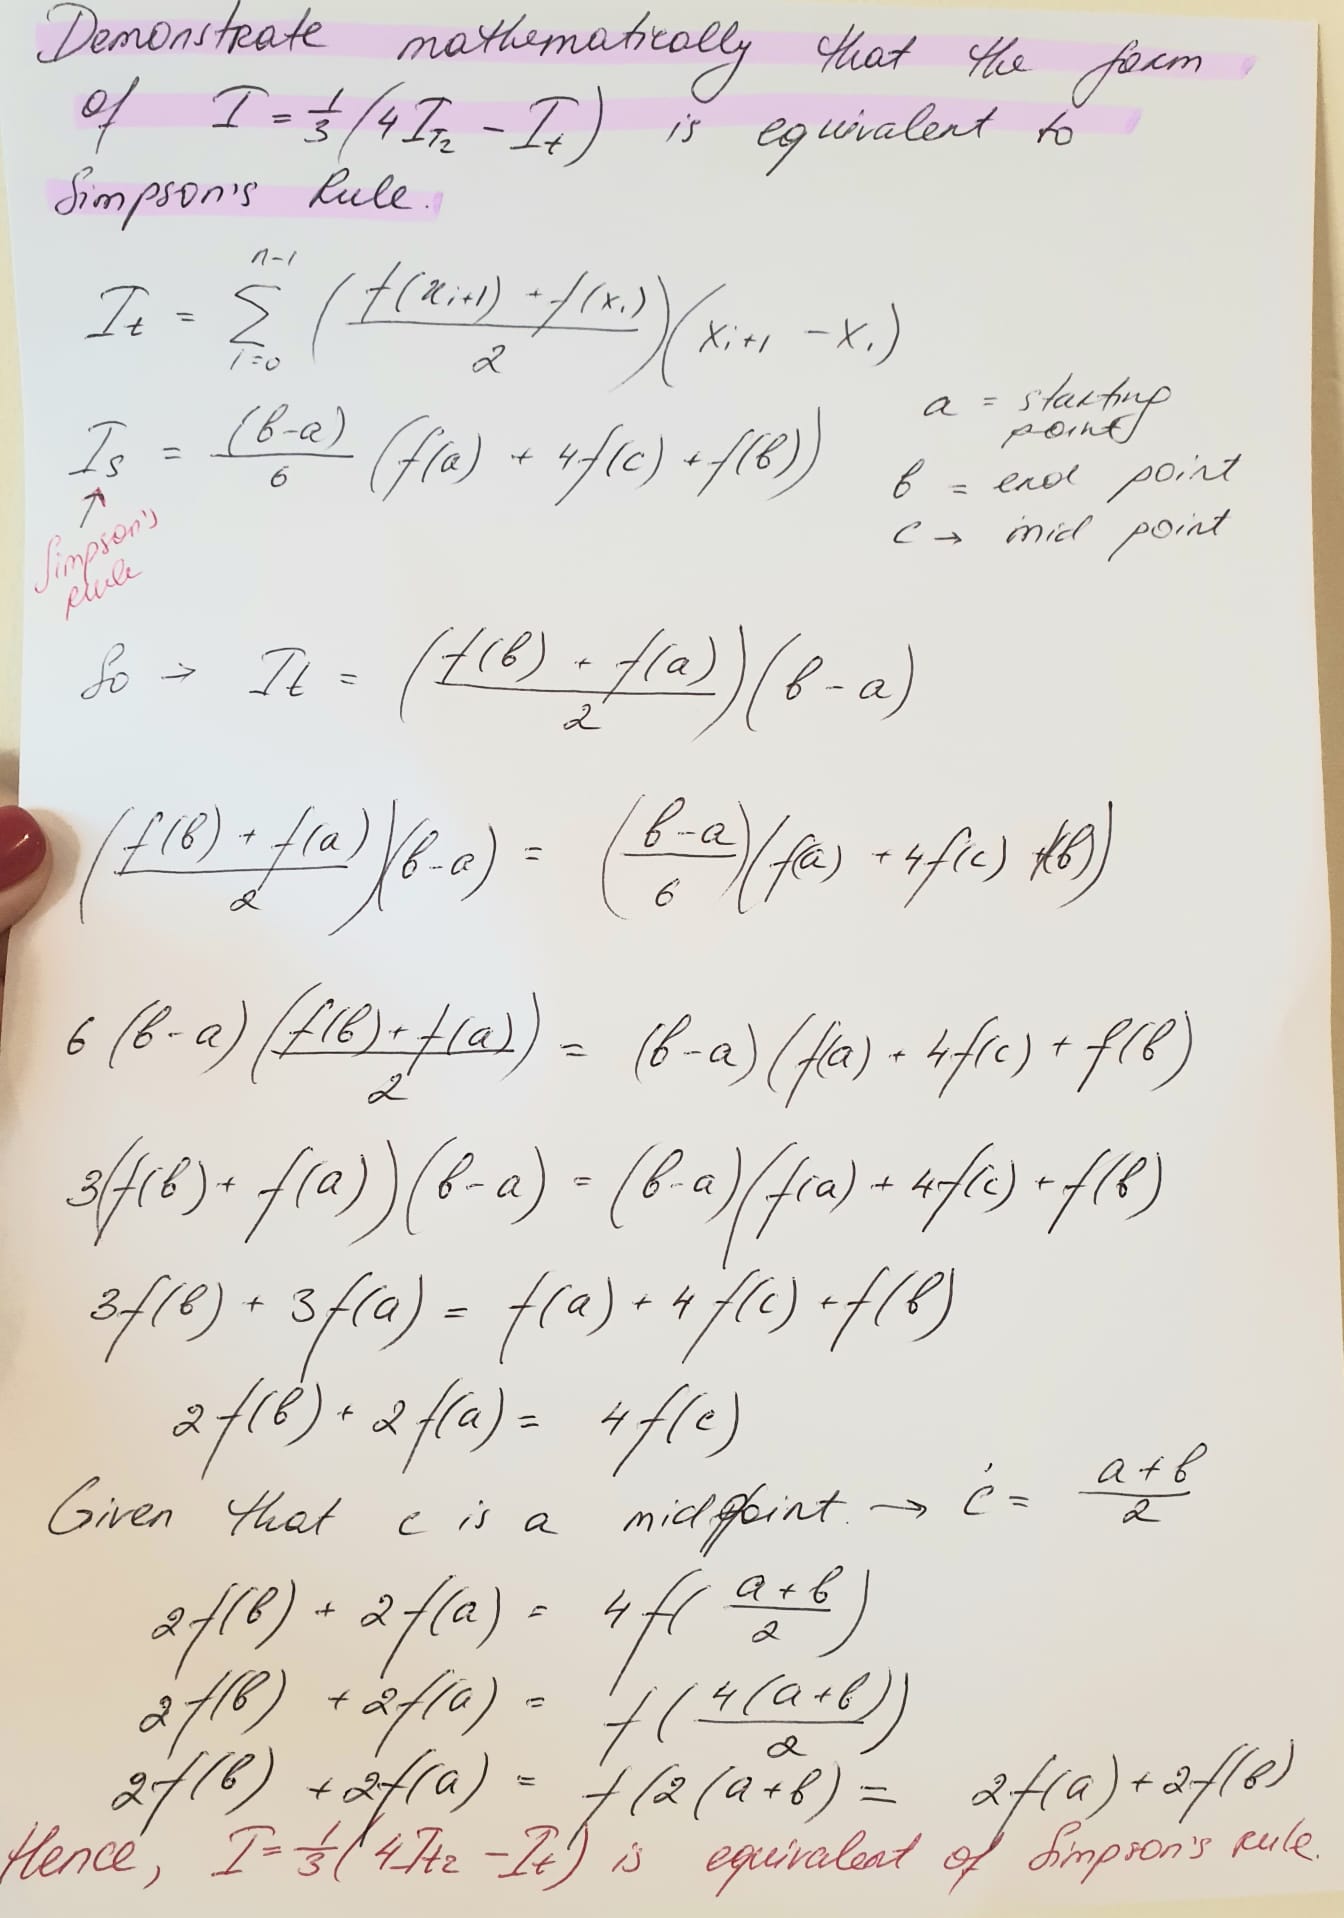 Demonstrate mathematically that the form
of I = 1/3 (4I_T2 - I_t) is equivalent to
Simpson's Rule.
I_t = Σ_{i=0}^{n-1} ( (f(x_{i+1}) + f(x_i)) / 2 ) (x_{i+1} - x_i)
a = starting point
I_s = (b-a)/6 (f(a) + 4f(c) + f(b))
b = end point
c → mid point
↑
Simpson's
rule
So → It = ( (f(b) + f(a)) / 2 ) (b - a)
( (f(b) + f(a)) / 2 ) (b-a) = ( (b-a)/6 ) (f(a) + 4f(c) + f(b))
6 (b-a) ( (f(b) + f(a)) / 2 ) = (b-a) (f(a) + 4f(c) + f(b)
3(f(b) + f(a)) (b-a) = (b-a) (f(a) + 4f(c) + f(b)
3f(b) + 3f(a) = f(a) + 4f(c) + f(b)
2f(b) + 2f(a) = 4f(c)
Given that c is a midpoint. → c = (a+b)/2
2f(b) + 2f(a) = 4f( (a+b)/2 )
2f(b) + 2f(a) = f( (4(a+b))/2 )
2f(b) + 2f(a) = f(2(a+b) = 2f(a) + 2f(b)
Hence, I = 1/3 (4It2 - It) is equivalent of Simpson's rule.